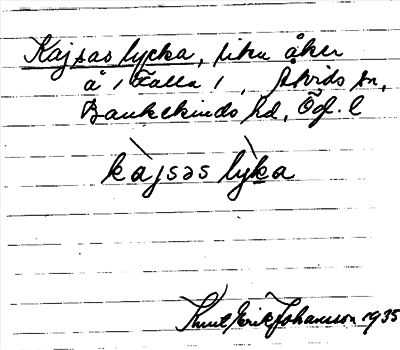 Kajsas lycka, liten åker
å /Falla/, Åtvids sn,
Bankekinds hd, Ög. l
kàjsəs lỳka
Knut Erik Johansson 1935